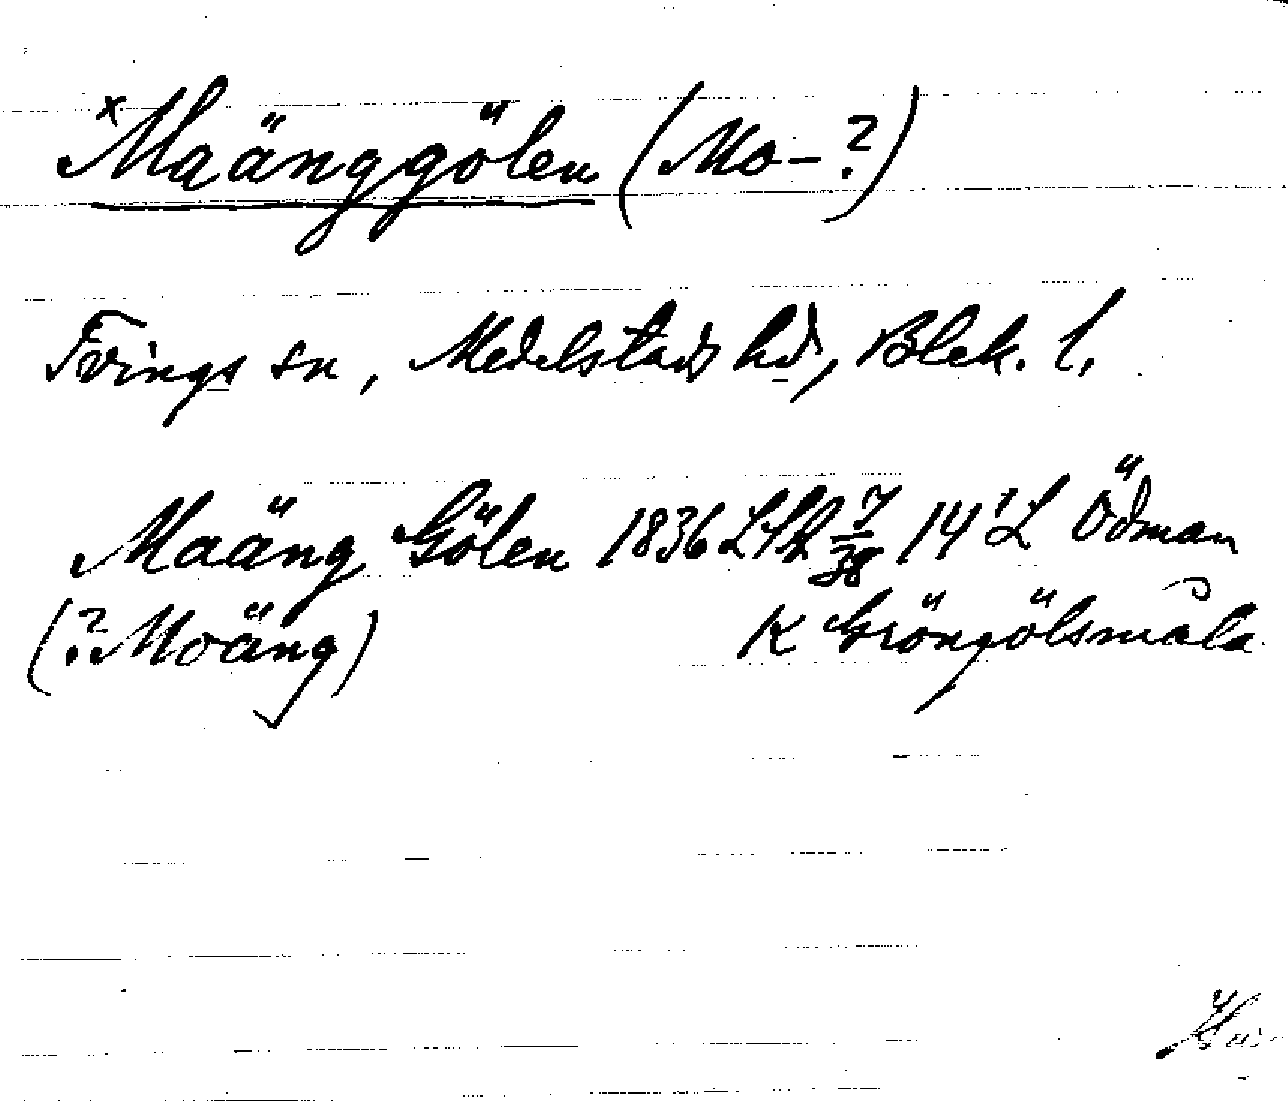 x Maänggölen (Mo-?)
Tvings sn, Medelstads hd, Blek. l.
Maäng Gölen 1836 LSA 7/38 14'L Ödman
(?Moäng) K Gröngölsmåla